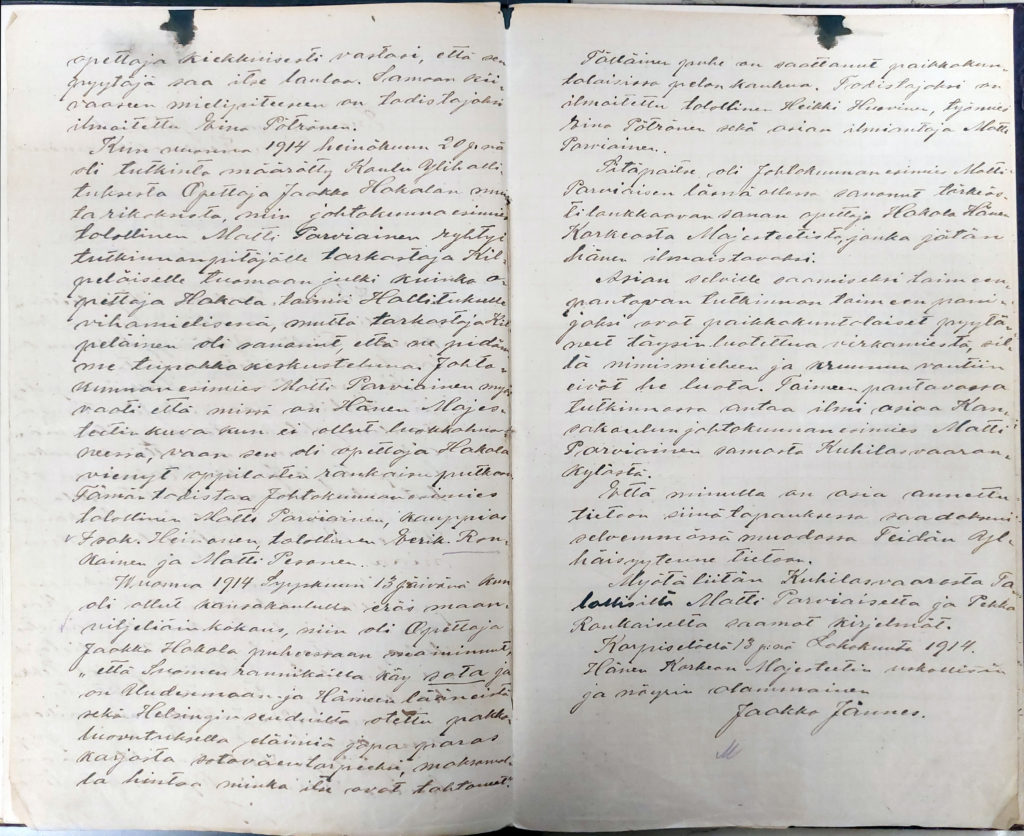 opettaja kiekkuisesti vastasi, että sen
pyytäjä saa itse laulaa. Samaan kii-
vaaseen mielipiteeseen on todistajaksi
ilmoitettu Eino Pötrönen.
Kun vuonna 1914 heinäkuun 20 p:nä
oli tutkinto määrätty Koulu Ylihalli-
tuksesta Opettaja Jaakko Hakalan muu-
ta rikoksista, niin johtokunnan esimies
talollinen Matti Parviainen ryhtyi
tutkinnonpitäjälle tarkastaja Kil-
peläiselle tuomaan julki kuinka o-
pettaja Hakala toimii Hallitukselle
vihamielisenä, mutta tarkastaja Kil-
peläinen oli sanonut, että ne pidäm-
me tupakkakeskusteluna. Johto-
kunnan esimies Matti Parviainen myös
vaati että missä on Hänen Majes-
teetin kuva kun ei ollut luokkahuo-
neessa, vaan sen oli opettaja Hakala
vienyt oppilasten rankaisu putkaan
Tämän todistaa Johtokunnan esimies
talollinen Matti Parviainen, kauppias
Isak. Heinonen, talollinen Eerik. Ron-
kainen ja Matti Pesonen.
Wuonna 1914 Syyskuun 13 päivänä kun
oli ollut kansakoululla eräs maan-
viljeliäin kokous, niin oli Opettaja
Jaakko Hakala puheessaan maininnut
„että Suomen rannikoilla käy sota ja
on Uudenmaan ja Hämeen lääneistä
sekä Helsingin seuduilta otettu pakko-
luovutuksella eläimiä jopa paras
karjasta sotaväen tarpeeksi, maksamal-
la hintaa minkä itse ovat tahtoneet."
Tällainen puhe on saattanut paikkakun-
talaisissa pelon kauhua. Todistajaksi on
ilmoitettu talollinen Heikki Huovinen, työmies
Eino Pötrönen sekä asian ilmiantaja Matti
Parviainen.
Sitäpaitse, oli Johtokunnan esimies Matti
Parviaisen läsnä ollessa sanonut törkeäs-
ti loukkaavan sanan opettaja Hakala Hänen
Korkeasta Majesteetista, jonka jätän
hänen ilmaistavaksi.
Asian selville saamiseksi toimeen-
pantavan tutkinnon toimeen pani-
joksi ovat paikkakuntalaiset pyytä-
neet täysin luotettua virkamiestä, sil-
lä nimismieheen ja kruunun voutiin
eivät he luota. Toimeen pantavassa
tutkinnossa antaa ilmi asiaa Kan-
sakoulun johtokunnan esimies Matti
Parviainen samasta Kuhilasvaaran-
kylästä.
Että minulla on asia annettu
tietoon siinä tapauksessa saadakseni
selvemmässä muodossa Teidän Yl-
häisyytenne tietoon.
Myötä liitän Kuhilasvaarasta Ta-
lollisilta Matti Parviaiselta ja Pekka
Ronkaiselta saamat kirjelmät.
Karpiselästä 13 p:nä Lokakuuta 1914.
Hänen Korkean Majesteetin uskollisin
ja nöyrin alammainen
Jaakko Jännes.